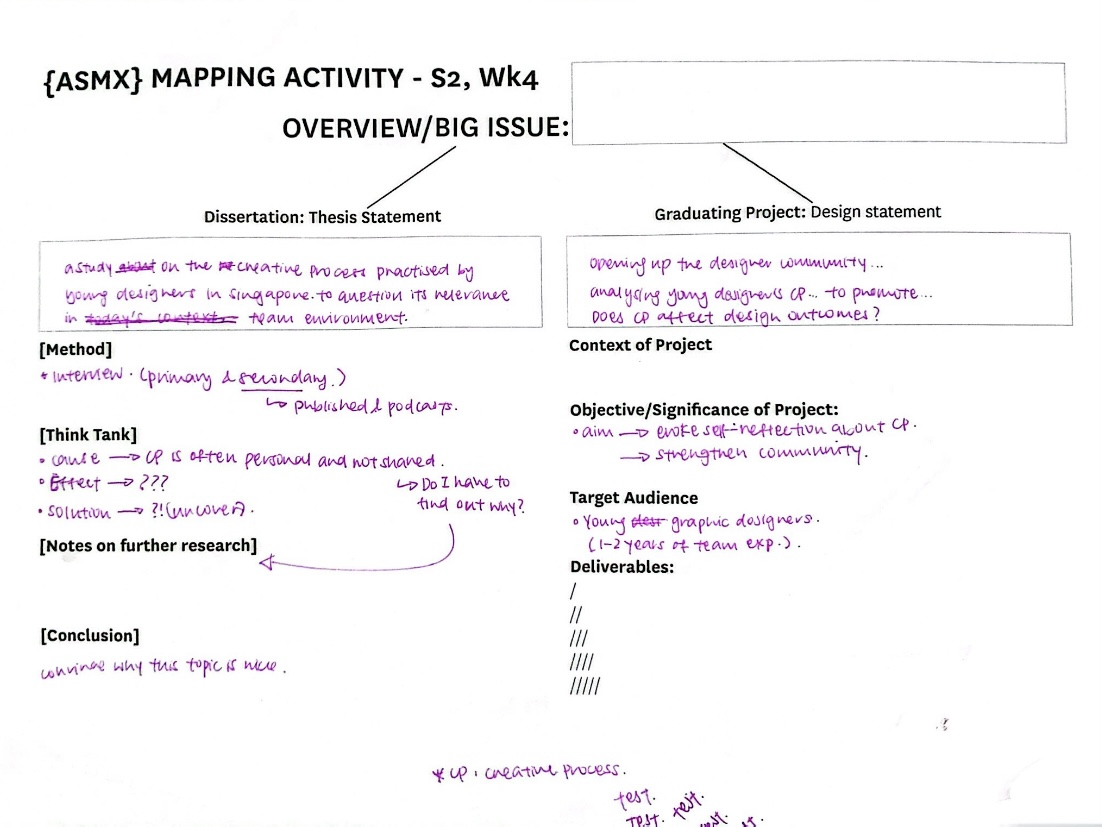 {ASMX} MAPPING ACTIVITY - S2, Wk4
OVERVIEW/BIG ISSUE:
Dissertation: Thesis Statement
a study about on the creative process practised by
young designers in Singapore. to question its relevance
in today's context. team environment.
[Method]
* interview. (primary & secondary.)
↳ published & podcasts.
[Think Tank]
• cause → CP is often personal and not shared.
• Effect → ???
↳ Do I have to
find out why?
• solution → ?! (uncover).
[Notes on further research]
[Conclusion]
convince why this topic is nice.
Graduating Project: Design statement
opening up the designer community...
analysing young designer's CP... to promote...
Does CP affect design outcomes?
Context of Project
Objective/Significance of Project:
• aim → evoke self-reflection about CP.
→ strengthen community.
Target Audience
• Young graphic designers.
(1-2 years of team exp.).
Deliverables:
/
//
///
////
/////
* CP : creative process.
test.
Test. test.